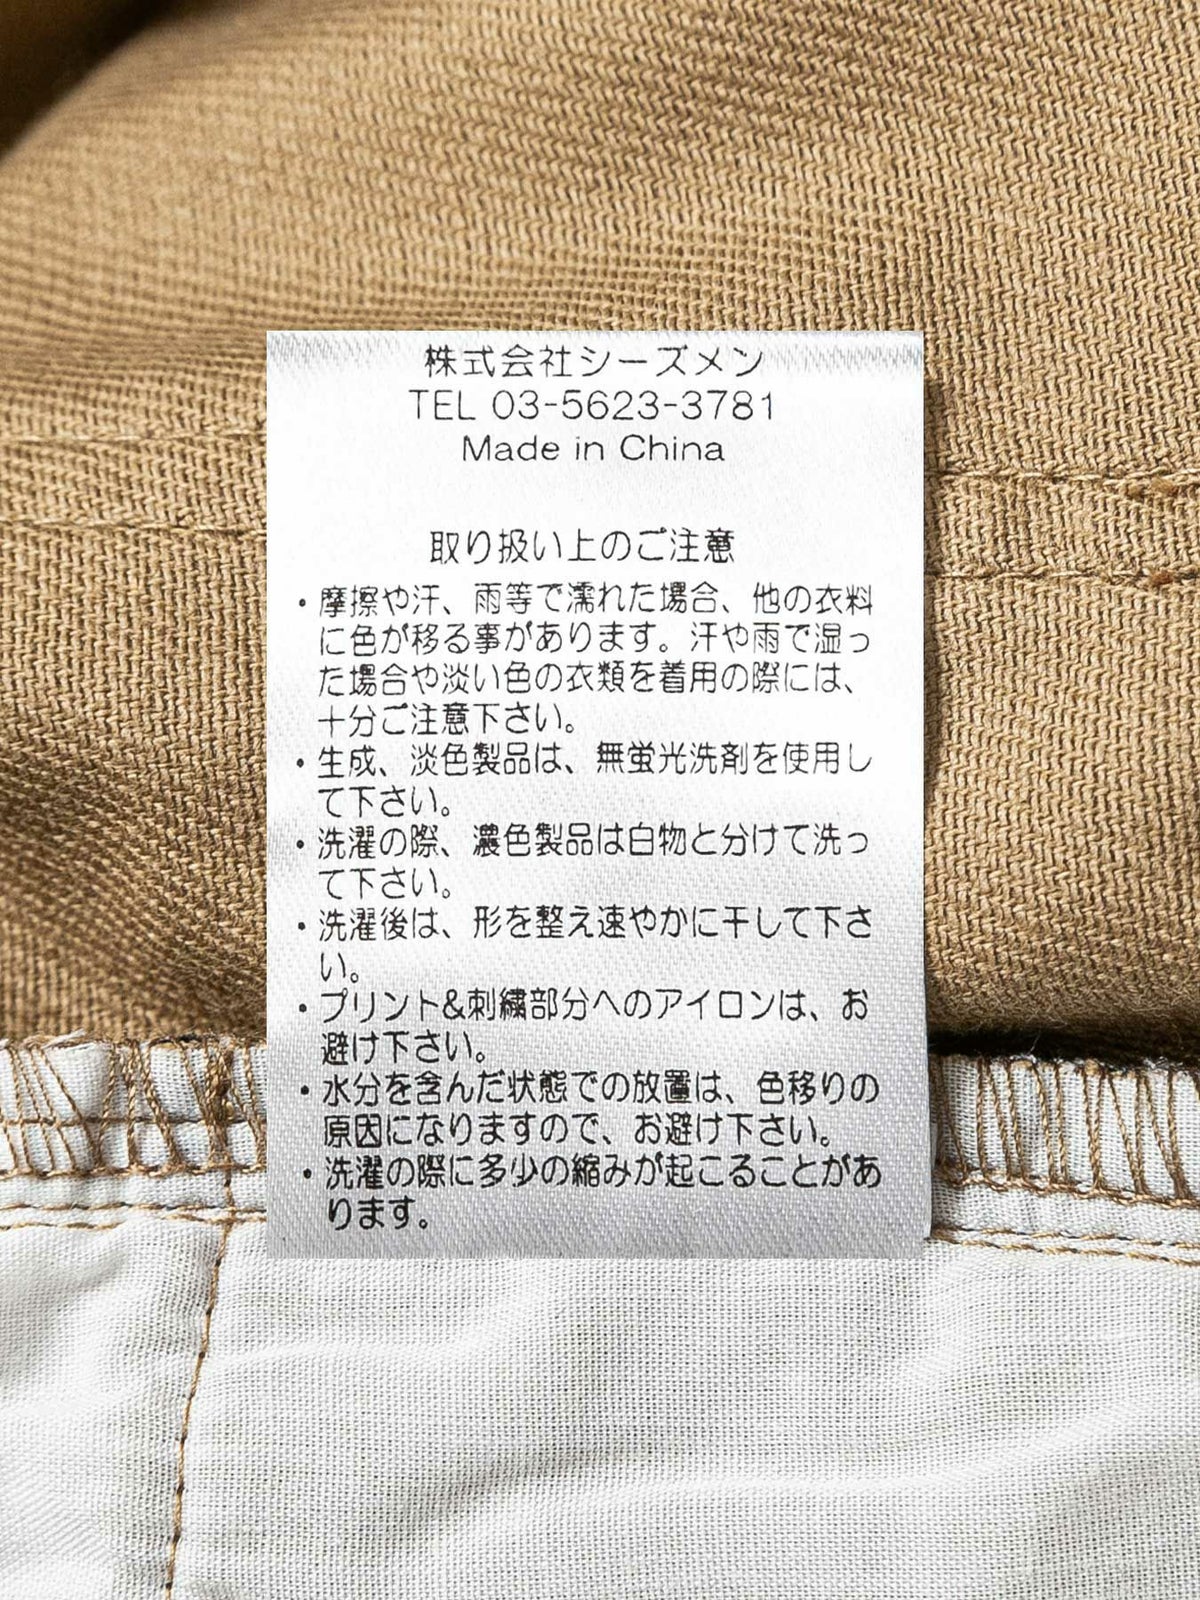 株式会社シーズメン
TEL 03-5623-3781
Made in China
取り扱い上のご注意
・摩擦や汗、雨等で濡れた場合、他の衣料
に色が移る事があります。汗や雨で湿っ
た場合や淡い色の衣類を着用の際には、
十分ご注意下さい。
・生成、淡色製品は、無蛍光洗剤を使用し
て下さい。
・洗濯の際、濃色製品は白物と分けて洗っ
て下さい。
・洗濯後は、形を整え速やかに干して下さ
い。
・プリント&刺繍部分へのアイロンは、お
避け下さい。
・水分を含んだ状態での放置は、色移りの
原因になりますので、お避け下さい。
・洗濯の際に多少の縮みが起こることがあ
ります。